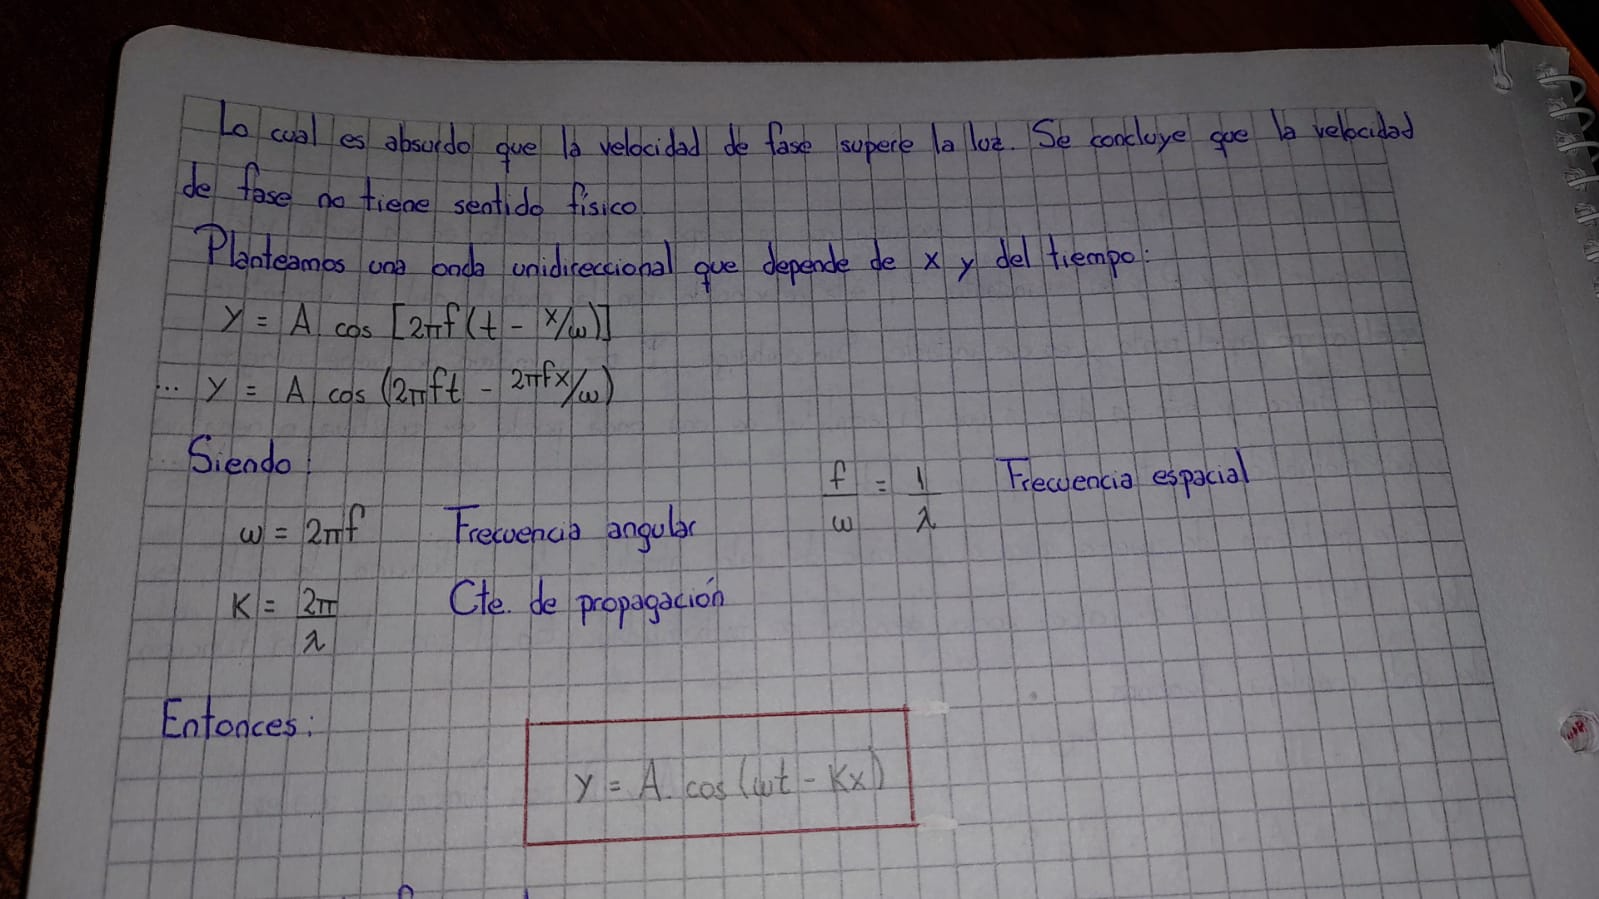 Lo cual es absurdo que la velocidad de fase supere la luz. Se concluye que la velocidad
de fase no tiene sentido físico.
Planteamos una onda unidireccional que depende de x y del tiempo:
y = A cos [2πf(t - x/ω)]
... y = A cos (2πft - 2πfx/ω)
Siendo:
f/ω = 1/λ Frecuencia espacial
ω = 2πf Frecuencia angular
K = 2π/λ Cte. de propagación
Entonces:
y = A. cos(ωt - Kx)